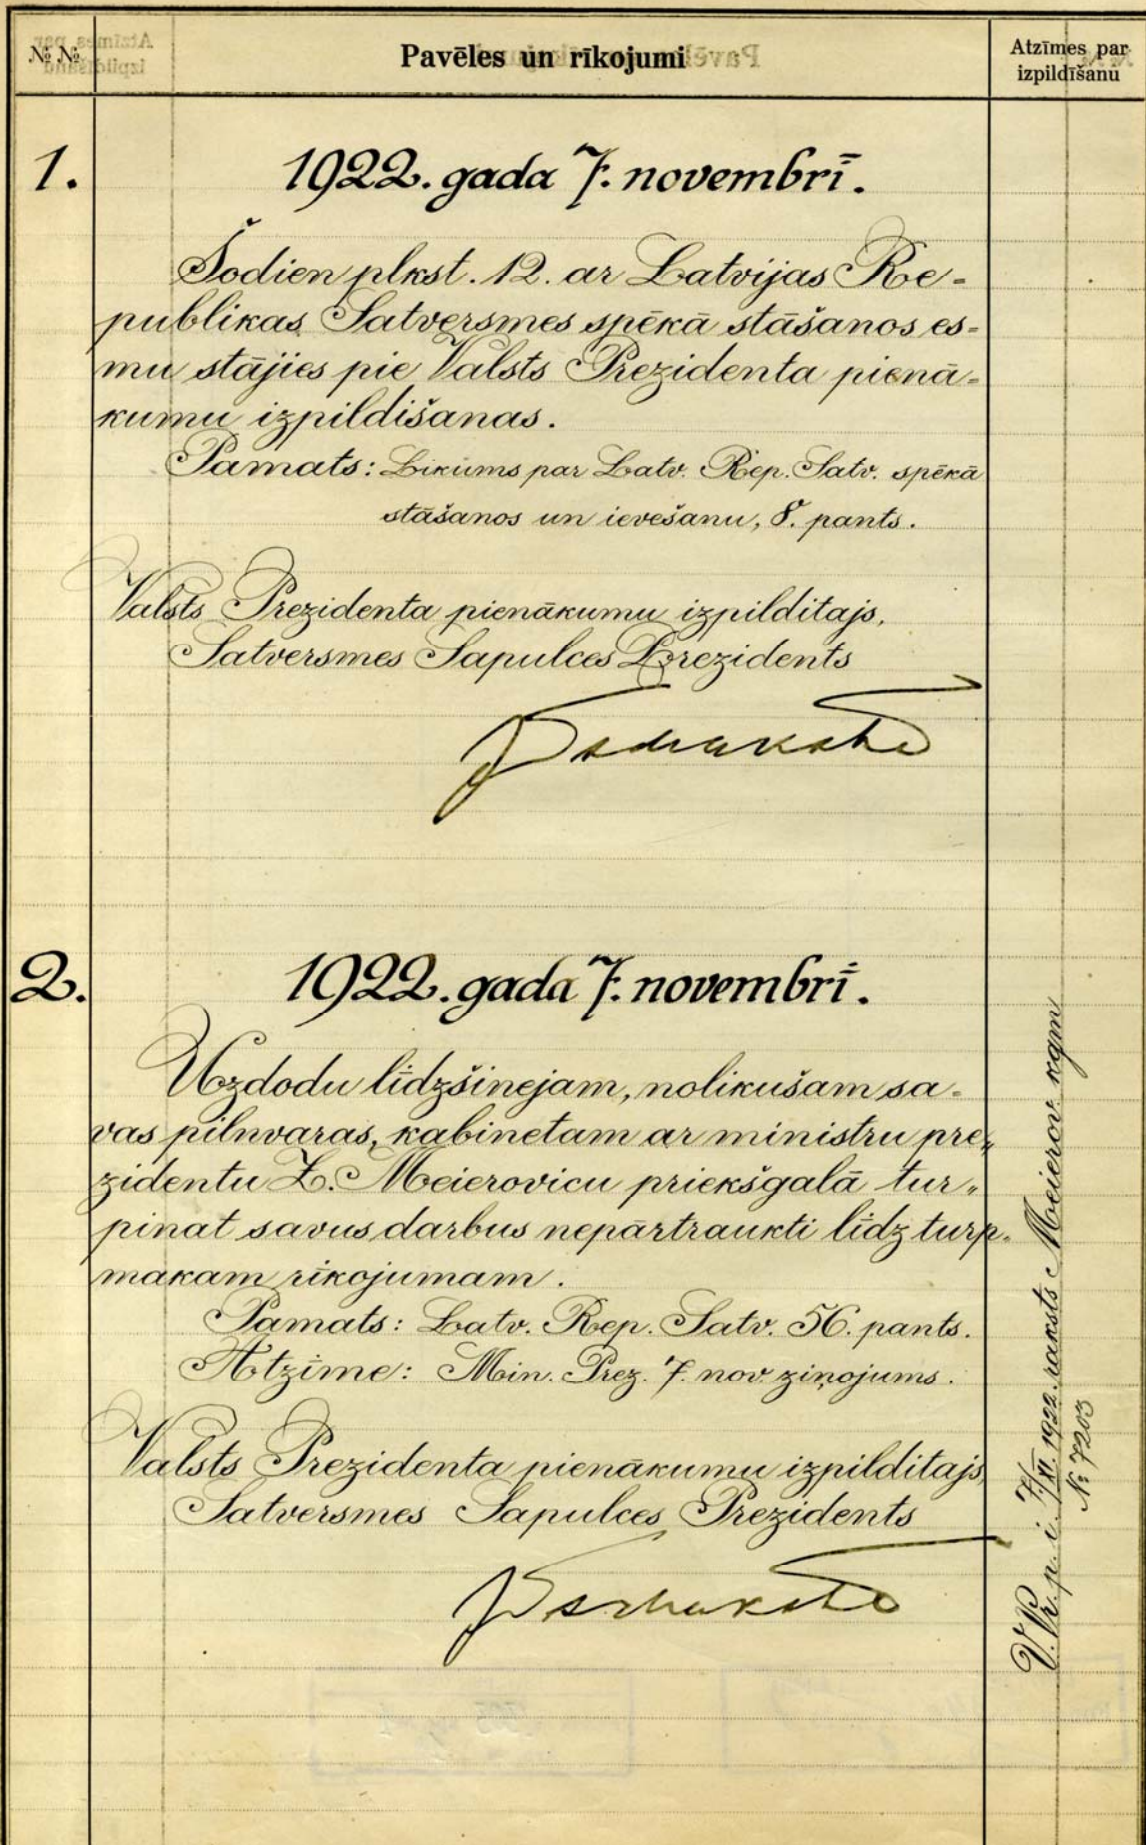 № №
Pavēles un rīkojumi
Atzīmes par
izpildīšanu
1.
1922. gada 7. novembrī.
Šodien plkst. 12. ar Latvijas Re-
publikas Satversmes spēkā stāšanos es-
mu stājies pie Valsts Prezidenta pienā-
kumu izpildišanas.
Pamats: Likums par Latv. Rep. Satv. spēkā
stāšanos un ievešanu, 8. pants.
Valsts Prezidenta pienākumu izpilditajs,
Satversmes Sapulces Prezidents
2.
1922. gada 7. novembrī.
Uzdodu līdzšinejam, nolikušam sa-
vas pilnvaras, kabinetam ar ministru pre-
zidentu Z. Meierovicu priekšgalā tur-
pinat savus darbus nepārtraukti līdz turp-
makam rīkojumam.
Pamats: Latv. Rep. Satv. 56. pants.
Atzīme: Min. Prez. 7. nov. ziņojums.
Valsts Prezidenta pienākumu izpilditajs,
Satversmes Sapulces Prezidents
V. Pr. p. i. 7/XI. 1922. raksts Meierov. kgm
№ 7203